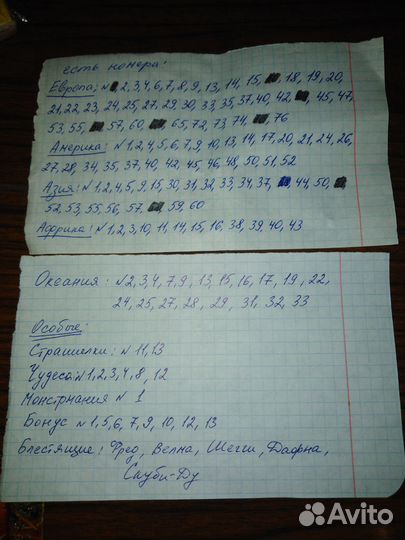 есть номера:
Европа: N 2,3,4,6,7,8,9,13,14,15 18,19,20,
21,22,23,24,25,27,29,30,33,35,37,40,42, 45,47,
53,55, 57,60, 65,72,73,74, 76
Америка: N1,2,4,5,6,7,9,10,13,14,17,20,21,24,26,
27,28,34,35,37,40,42,45,46,48,50,51,52
Азия: N1,2,4,5,9,15,30,31,32,33,34,37, 44,50,
52,53,55,56,57, 59,60
Африка: N1,2,3,10,11,14,15,16,38,39,40,43
Океания: N2,3,4,7,9,13,15,16,17,19,22,
24,25,27,28,29,31,32,33
Особые:
Страшилки: N 11,13
Чудеса: N1,2,3,4,8,12
Монстрмания N 1
Бонус N1,5,6,7,9,10,12,13
Блестящие: Фред, Велма, Шегги, Дафна,
Скуби-Ду
Avito